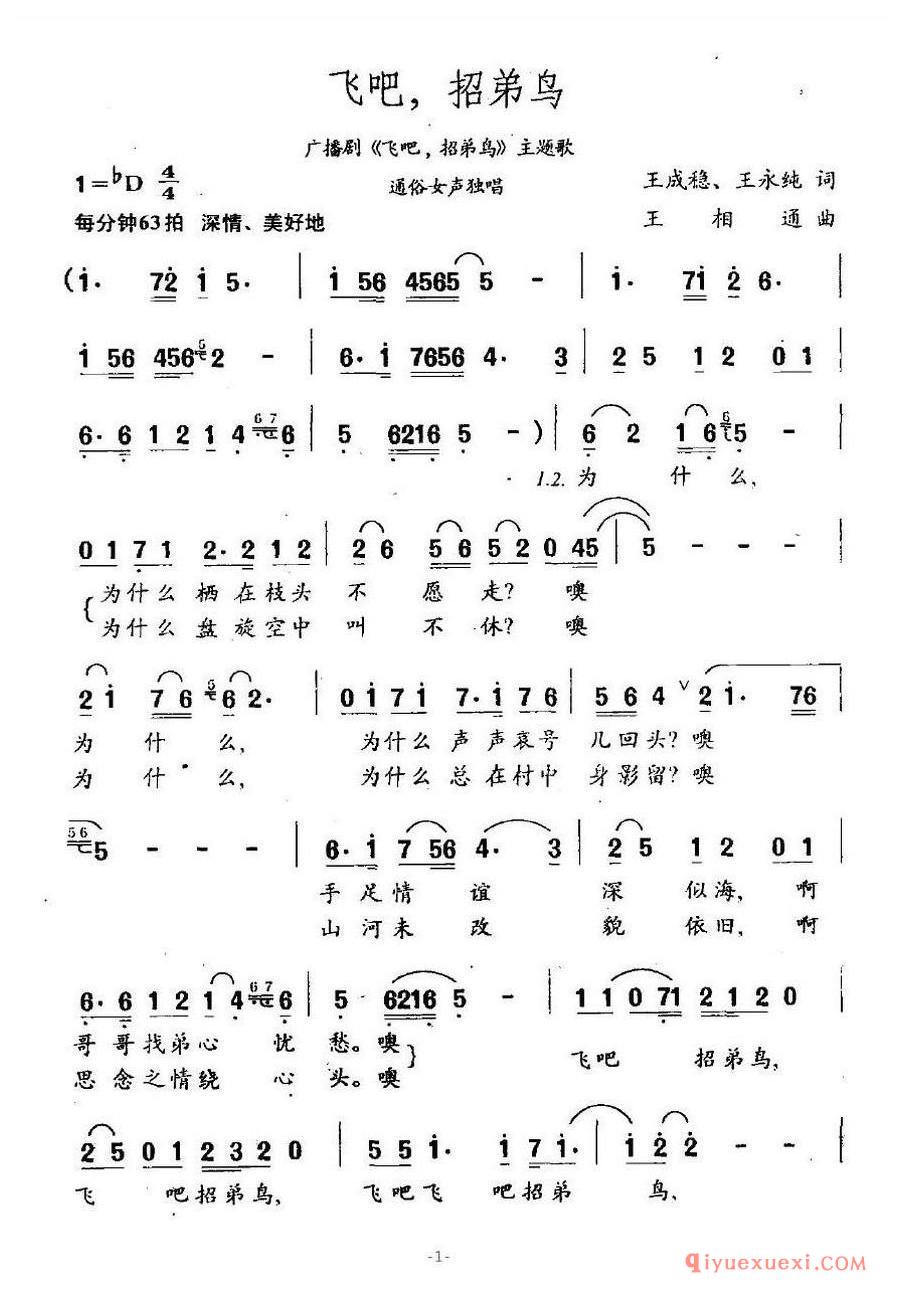 飞吧，招弟鸟
广播剧《飞吧，招弟鸟》主题歌
1=♭D 4/4
通俗女声独唱
王成稳、王永纯 词
每分钟63拍 深情、美好地
王相通 曲
(1· 72 1 5· | 1 56 4565 5 - | 1· 71 2 6· |
1 56 456 5 2 - | 6·1 7656 4· 3 | 2 5 1 2 0 1 |
6·6 1 2 1 4 67 6 | 5 6216 5 -) | 6 2 1 6 6 5 - |
1.2. 为 什 么，
0 1 7 1 2·2 1 2 | 2 6 5 6 5 2 0 45 | 5 - - - |
为什么栖在枝头 不 愿 走？ 噢
为什么盘旋空中 叫 不 休？ 噢
2 1 7 6 5 6 2· | 0 1 7 1 7·1 7 6 | 5 6 4 ∨ 2 1· 76 |
为 什 么， 为什么声声哀号 儿回头？噢
为 什 么， 为什么总在村中 身影留？噢
56 5 - - - | 6·1 7 56 4· 3 | 2 5 1 2 0 1 |
手足情 谊 深 似海，啊
山河未 改 貌 依旧，啊
6·6 1 2 1 4 67 6 | 5 6216 5 - | 1 1 0 71 2 1 2 0 |
哥哥找弟心 忧 愁。噢 飞吧 招弟鸟，
思念之情绕 心 头。噢
2 5 0 1 2 3 2 0 | 5 5 1· 1 7 1· | 1 2 2 - - |
飞 吧招弟鸟， 飞吧飞 吧招弟 鸟，
-1-
qiyuexuexi.com